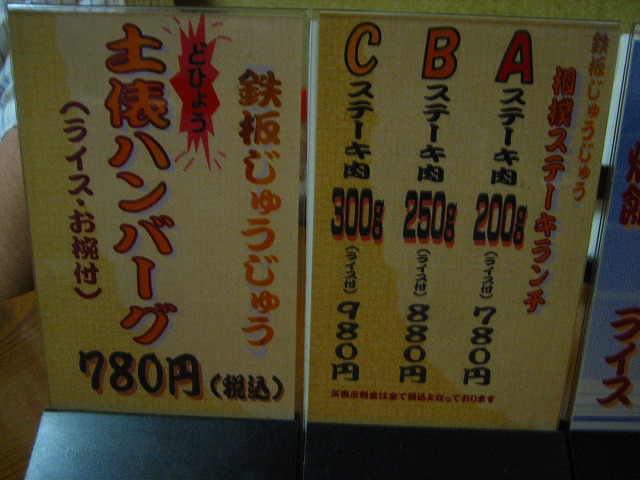 鉄板じゅうじゅう
どひょう
土俵ハンバーグ
(ライス・お椀付)
780円(税込)
鉄板じゅうじゅう
相撲ステーキランチ
A
ステーキ肉
200g
(ライス付)
780円
B
ステーキ肉
250g
(ライス付)
880円
C
ステーキ肉
300g
(ライス付)
980円
※表示料金は全て税込となっております
ライス